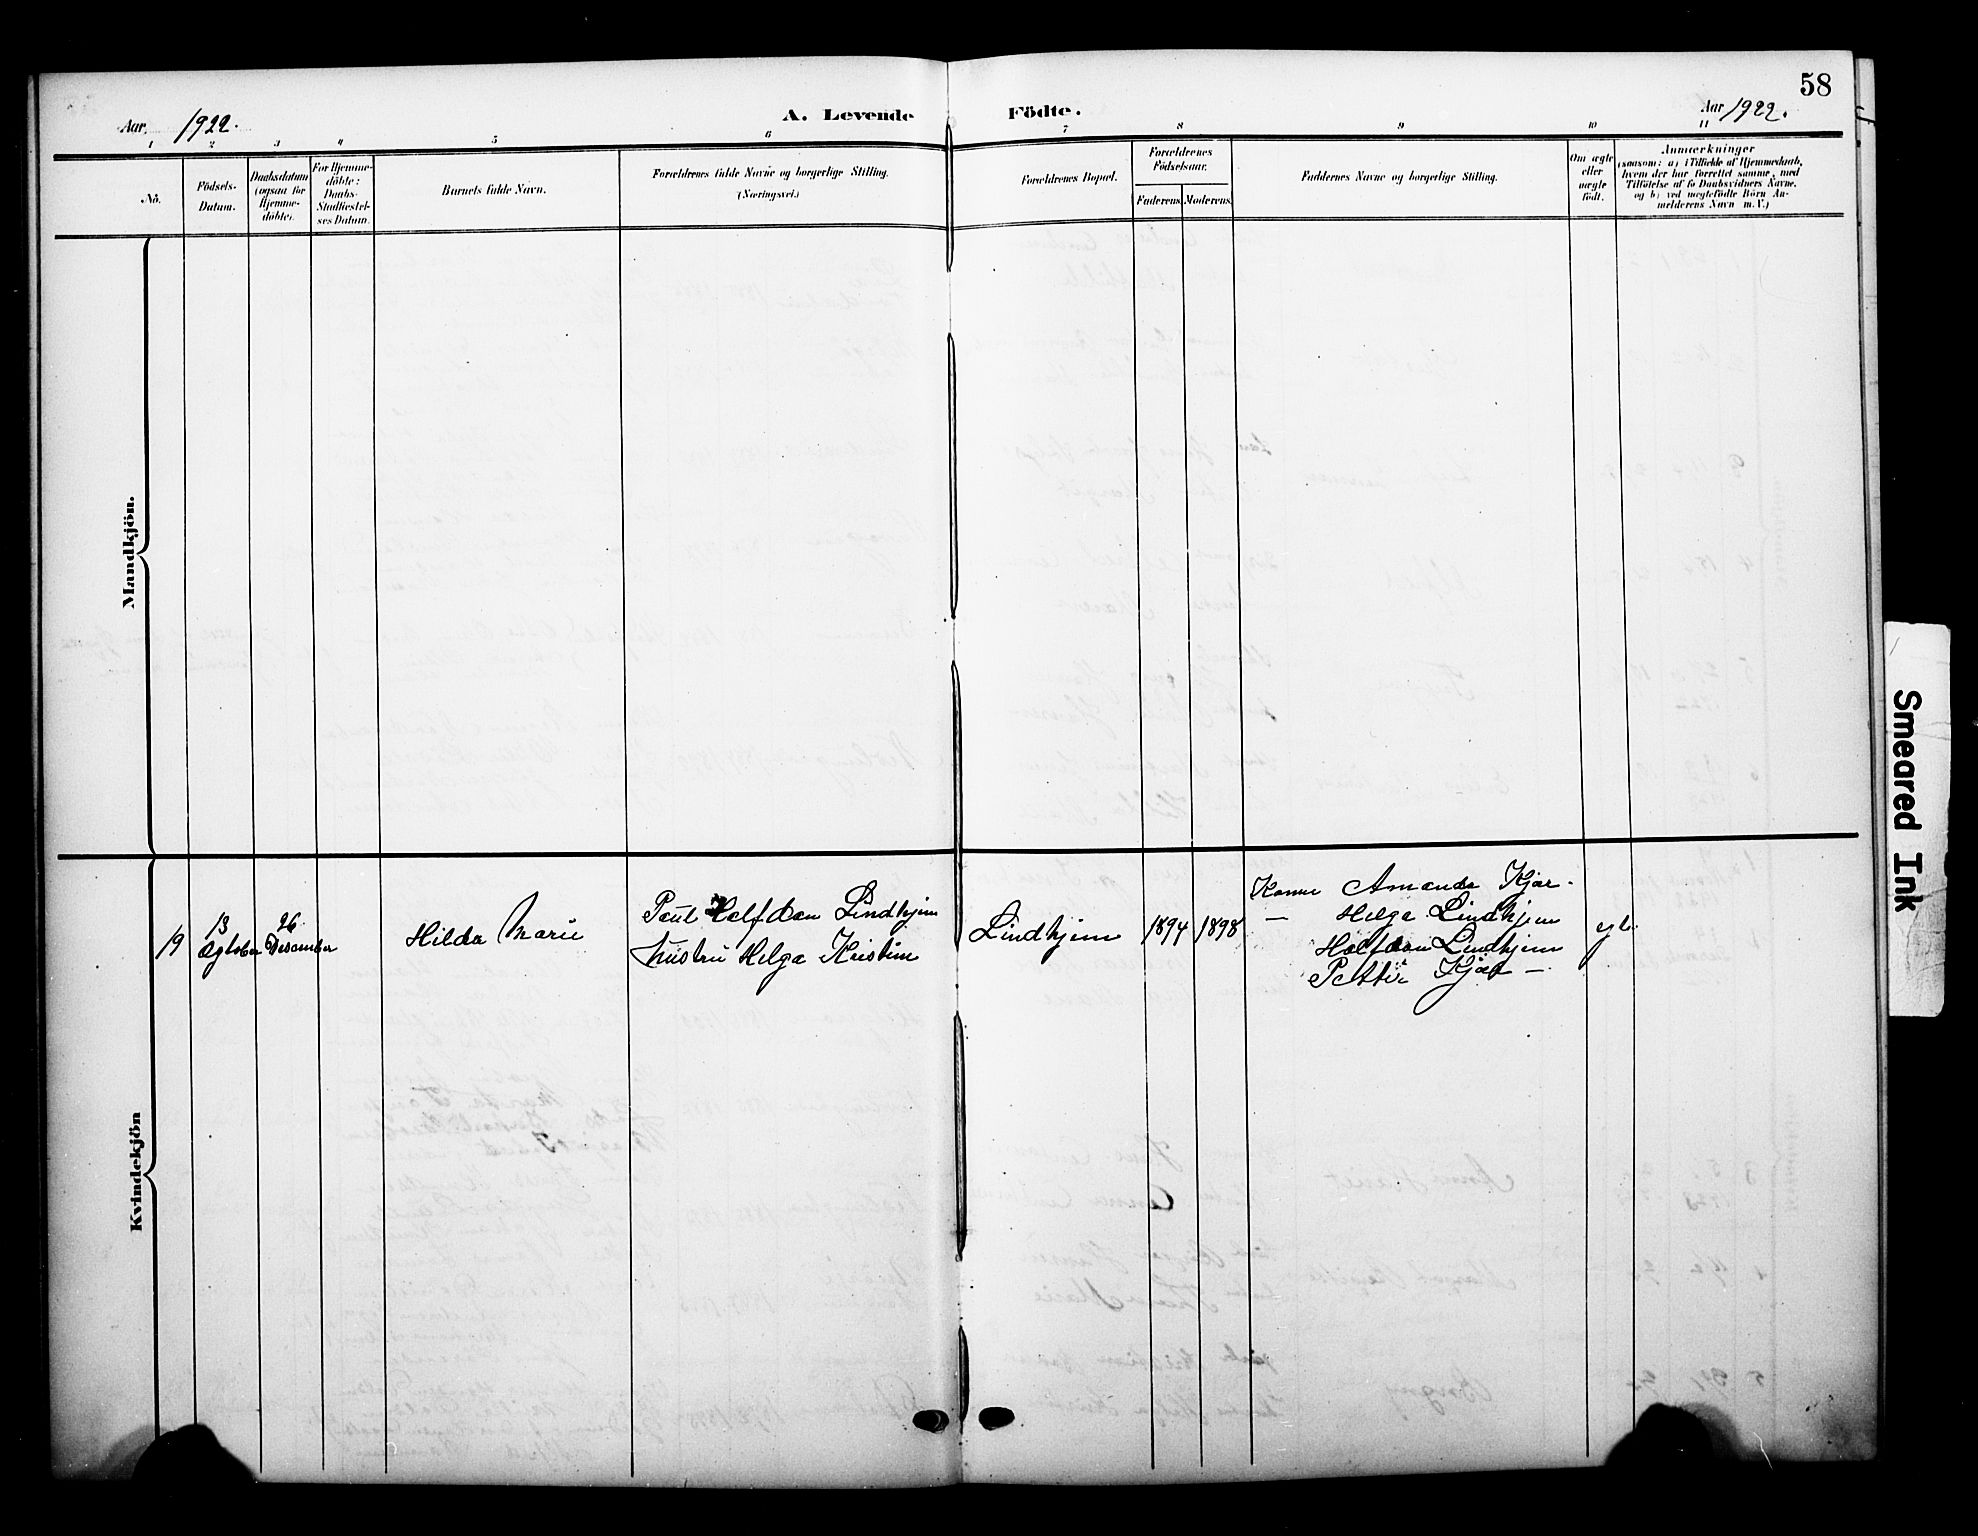 58
Aar 1922.
A. Levende Födte.
Aar 1922.
1 2 3 4 5 6 7 8 9 10 11
No.
Födsels-
Datum.
Daabsdatum
(ogsaa for
Hjemme-
döbte).
For Hjemme-
döbte:
Daabs-
Stadfæstel-
ses Datum.
Barnets fulde Navn.
Forældrenes fulde Navne og borgerlige Stilling.
(Næringsvei.)
Forældrenes Bopæl.
Forældrenes
Födselsaar.
Faderens
Moderens
Faddernes Navne og borgerlige Stilling.
Om ægte
eller
uægte
født.
Anmærkninger
(saasom: a) i Tilfælde af Hjemmedaab,
hvem der har forrettet samme, med
Tilföielse af to Daabsvidners Navne,
og b) ved uegtefödte Börn An-
melderens Navn m. V.)
Mandkjön.
Kvindekjön
19
13
Ogtober
26
Desember
Hilda Marie
Paul Halfdan Lindhjem
hustru Helga Kristine
Lindhjem
1894
1898
Kone Amanda Kjær -
— Helga Lindhjem
Halfdan Lindhjem
Petter Kjær —
Smeared Ink